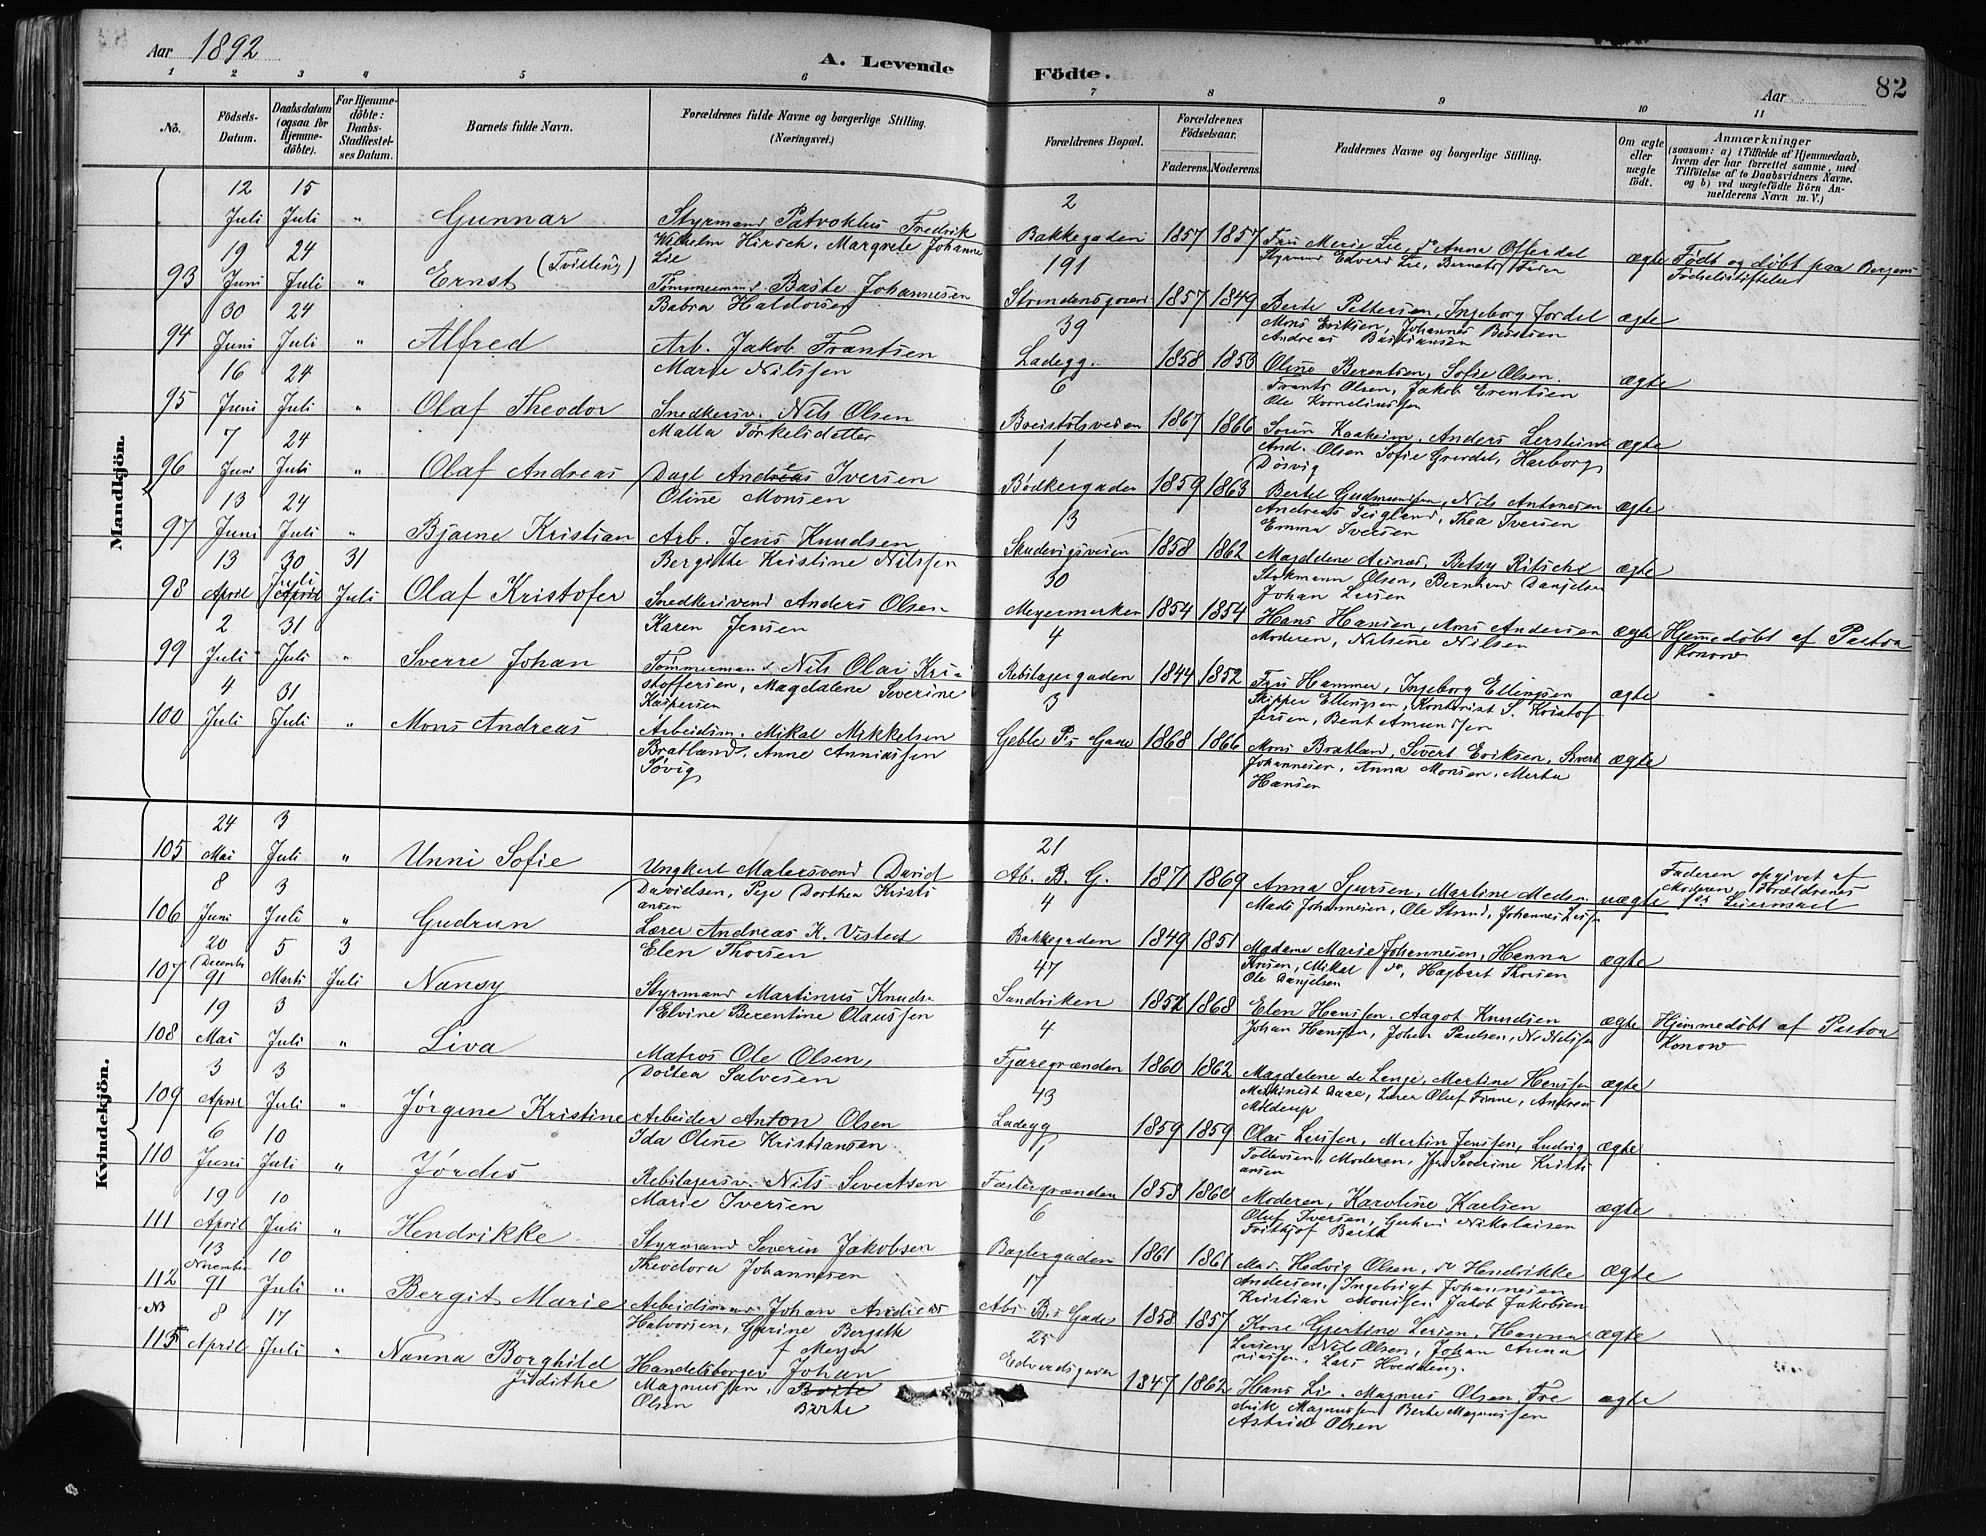 Aar 1892
A. Levende Födte.
Aar
82
1 2 3 4 5 6 7 8 9 10 11
No.
Födsels-Datum.
Daabsdatum (ogsaa for Hjemme-döbte).
For Hjemme-döbte: Daabs-Stadfæstel-ses Datum.
Barnets fulde Navn.
Forældrenes fulde Navne og borgerlige Stilling. (Næringsvei.)
Forældrenes Bopæl.
Forældrenes Födselsaar.
Faderens. Moderens.
Faddernes Navne og borgerlige Stilling.
Om ægte eller uægte födt.
Anmærkninger
(saasom: a) i Tilfælde af Hjemmedaab, hvem der har forrettet samme, med Tilföielse af to Daabsvidners Navne. og b) ved uægtefödte Börn An-melderens Navn m. V.)
Mandkjön.
12 Juli 15 Juli " Gunnar Styrmand Patroklus Fredrik
Wilhelm Hirsch, Margrete Johanne
Lie
2 Bakkegaden 1857 1857 Fru Marie Lie, do Anna Offerdal
Styrmand Edvard Lie, Bernets
ægte Født og døbt paa Bergens
Fødselsstiftelse
93 19 Juni 24 Juli " Ernst (Tvilling) Tømmermand Baste Johannesen
Babra Haldorsen
191 Strandensgaard 1857 1849 Berte Pettersen, Ingeborg Jordal
Mons Eriksen, Johannes Bastesen
Andreas Bastiansen
ægte
94 30 Juni 24 Juli " Alfred Arb. Jakob Frantsen
Marie Nilssen
39 Ladegg. 1858 1850 Oline Berentsen, Sofie Olsen
Frants Olsen, Jakob Erentsen
Ole Korneliussen
ægte
95 16 Juni 24 Juli " Olaf Theodor Snedkersv. Nils Olsen
Malla Torkelsdatter
6 Breistølsveien 1867 1866 Soren Kaaheim, Anders
And. Olsen Sofie
ægte
96 7 Juni 24 Juli " Olaf Andreas Dagl Andreas Iversen
Oline Monsen
1 Bødkergaden 1859 1863 Bertel Gudmundsen, Nils Antonesen
Andreas Teigland, Thea Iversen
Emma Iversen
ægte
97 13 Juni 24 Juli " Bjarne Kristian Arb. Jens Knudsen
Bergitte Kristine Nilssen
13 Skudevigsveien 1858 1862 Magdalene Aarnes, Betsy Ritsche
Stokmann Olsen, Bernhard Danjelsen
Johan Larsen
ægte
98 13 April 30 Juli 31 Juli Olaf Kristofer Snedkersvend Anders Olsen
Karen Jensen
30 Meyermarken 1854 1854 Hans Hansen, Mons Andersen
Moderen, Nilsine Nilsen
ægte Hjemmedøbt af Pastor
Konow
99 2 Juli 31 Juli " Sverre Johan Tømmermand Nils Olai Kri-
stoffersen, Magdalene Severine
Kaspersen
4 Rebslagergaden 1844 1852 Fru Hammer, Ingeborg Ellingsen
Skipper Ellingsen, Kontorist S. Kristof
fersen, Bent Amundsen
ægte
100 4 Juli 31 Juli " Mons Andreas Arbeidsm. Mikal Mikkelsen
Bratland, Anne Anniassen
Søvig
3 Geble P.s Gade 1868 1866 Mons Bratland, Sivert Eriksen, Sivert
Johannesen, Anna Monsen, Marta
Hansen
ægte
Kvindekjön.
105 24 Mai 3 Juli " Unni Sofie Ungkarl Malersvend David
Davidsen, Pige Dorthea Kristi
ansen
21 Ab. B. G. 1871 1869 Anna Sjursen, Martine Madsen
Mads Johannesen, Ole Strand, Johannes
uægte Faderen opgivet af
Moderen. Forældrenes
1ste Leiermaal
106 8 Juni 3 Juli " Gudrun Lærer Andreas K. Visted
Elen Thorsen
4 Bakkegaden 1849 1851 Madame Marie Johannesen, Hanna
Thorsen, Mikal do, Hagbart Thorsen
Ole Danjelsen
ægte
107 20 December 91 5 Marts 3 Juli Nansy Styrmand Martinus Knuds
Elvine Berentine Olaussen
47 Sandviken 1852 1868 Elen Hanssen, Aagot Knudsen
Johan Hanssen, Johan Paulsen, Nils Nilssen
ægte Hjemmedøbt af Pastor
Konow
108 19 Mai 3 Juli " Liva Matros Ole Olsen,
Dortea Salvesen
4 Fjæregrænden 1860 1862 Magdalene de Lange, Martine Hanssen
Maskinist Aase, Lærer Oluf Finne, Andreas
Milderup
ægte
109 3 April 3 Juli " Jørgine Kristine Arbeider Anton Olsen
Ida Oline Kristiansen
43 Ladegg 1859 1859 Olai Larssen, Martin Jenssen, Ludvig
Tollevsen, Moderen, Jfr Severine Kristi
ansen
ægte
110 6 Juni 10 Juli " Jørdis Rebslagersv. Nils Sivertsen
Marie Iversen
1 Fastergrænden 1858 1860 Moderen, Karoline Karlsen
Oluf Iversen, Nikolaisen
Frithjof Barth
ægte
111 19 April 10 Juli " Hendrikke Styrmand Severin Jakobsen
Theodora Johannesen
6 Baglergaden 1861 1861 Mad. Hedvig Olsen, do Hendrikke
Andersen, Ingebrigt Johannesen
Kristian Monssen Jakob Jakobsen
ægte
112 13 November 91 10 Juli " Bergit Marie Arbeidsmand Johan Andreas
Halvorsen, Gurine Bergitte
f Meyer
17 Abs B.s Gade 1858 1857 Kone Gjertine Larsen, Hanna
Larsen, Nils Olsen, Johan Anna
niassen, Lars
ægte
NB
115 8 April 17 Juli " Nanna Borghild
Judithe
Handelsborger Johan
Magnussen, Berte
Olsen Berte
25 Edvardsgaden 1847 1862 Hans Lie, Magnus Olsen, Fre
drik Magnussen Berte Magnussen
Astrid Olsen
ægte